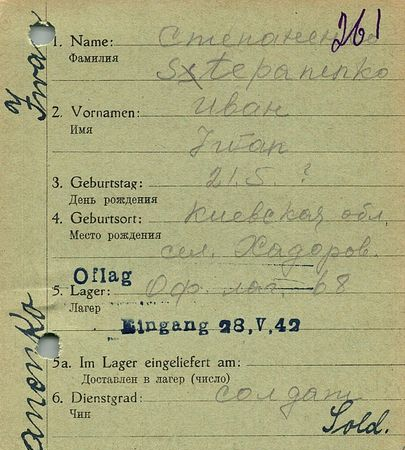 261
1. Name: Степаненко
Фамилия
Stepanenko
2. Vornamen: Иван
Имя
Iwan
3. Geburtstag: 21.5. ?
День рождения
4. Geburtsort: Киевская обл
Место рождения
сел. Хадоров.
Oflag
5. Lager: Оф. лаг. 68
Лагерь
Eingang 28.V.42
5a. Im Lager eingeliefert am:
Доставлен в лагерь (число)
6. Dienstgrad: солдат
Чин
Sold.
Iwan
anenko